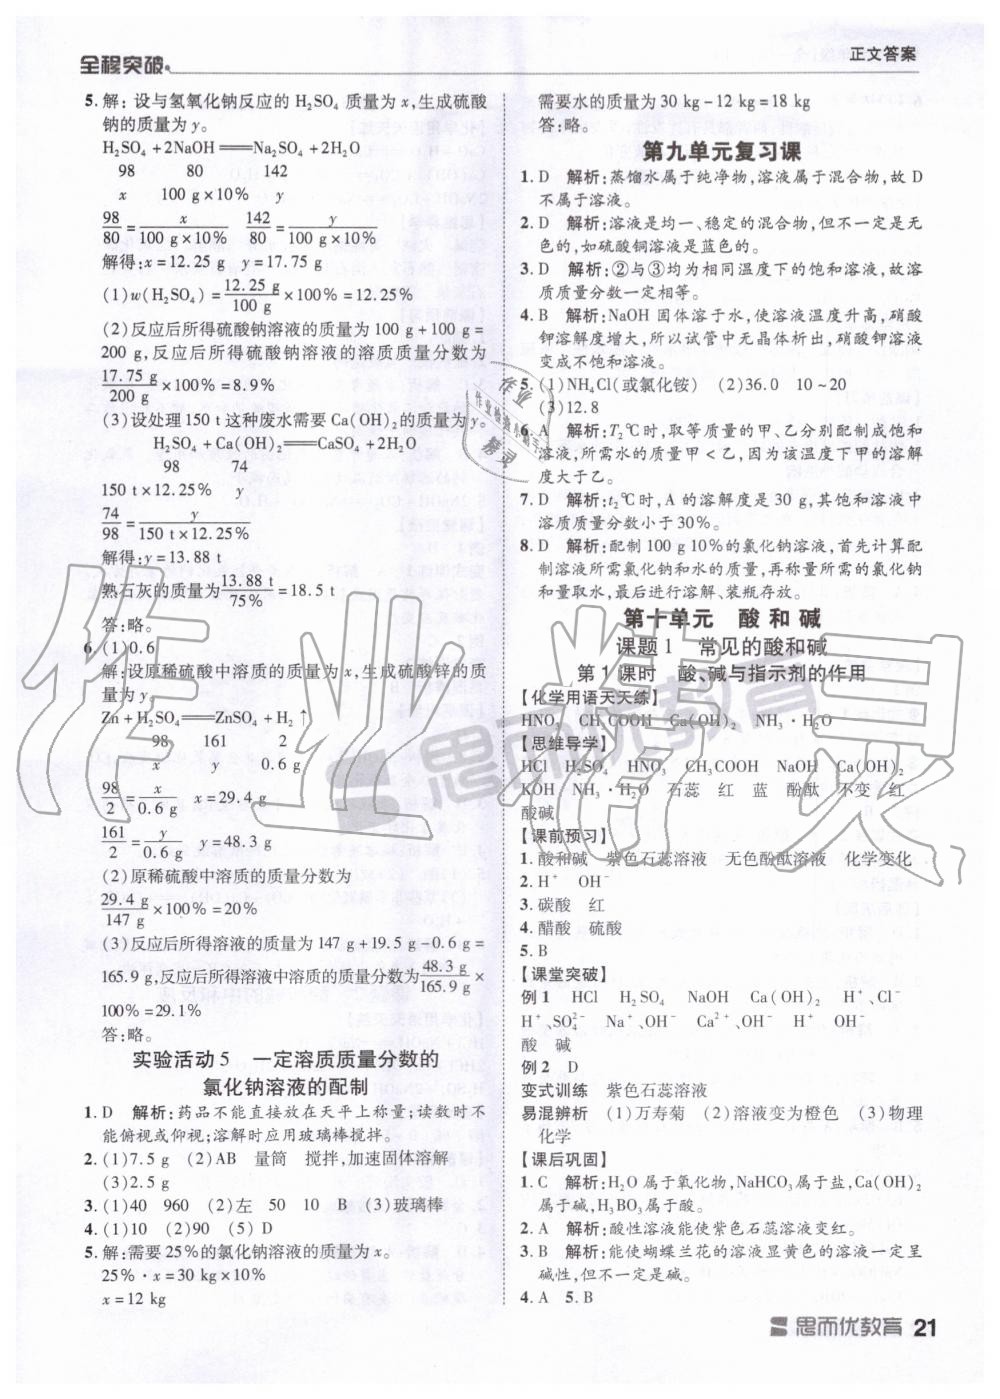 全程突破
正文答案
5. 解：设与氢氧化钠反应的 H₂SO₄ 质量为 x，生成硫酸
钠的质量为 y。
H₂SO₄＋2NaOH═══Na₂SO₄＋2H₂O
98　80　142
x　100 g×10%　y
98/80＝x/(100 g×10%)　142/80＝y/(100 g×10%)
解得：x＝12.25 g　y＝17.75 g
(1)w(H₂SO₄)＝12.25 g/100 g×100%＝12.25%
(2)反应后所得硫酸钠溶液的质量为 100 g＋100 g＝
200 g，反应后所得硫酸钠溶液的溶质质量分数为
17.75 g/200 g×100%＝8.9%
(3)设处理 150 t 这种废水需要 Ca(OH)₂ 的质量为 y。
H₂SO₄＋Ca(OH)₂═══CaSO₄＋2H₂O
98　74
150 t×12.25%　y
74/98＝y/(150 t×12.25%)
解得：y＝13.88 t
熟石灰的质量为13.88 t/75%＝18.5 t
答：略。
6. (1)0.6
解：设原稀硫酸中溶质的质量为 x，生成硫酸锌的质
量为 y。
Zn＋H₂SO₄═══ZnSO₄＋H₂↑
98　161　2
x　y　0.6 g
98/2＝x/0.6 g　x＝29.4 g
161/2＝y/0.6 g　y＝48.3 g
(2)原稀硫酸中溶质的质量分数为
29.4 g/147 g×100%＝20%
(3)反应后所得溶液的质量为 147 g＋19.5 g－0.6 g＝
165.9 g，反应后所得溶液中溶质的质量分数为48.3 g/165.9 g×
100%＝29.1%
答：略。
实验活动 5　一定溶质质量分数的
氯化钠溶液的配制
1. D　解析：药品不能直接放在天平上称量；读数时不
能俯视或仰视；溶解时应用玻璃棒搅拌。
2. (1)7.5 g　(2)AB　量筒　搅拌，加速固体溶解
(3)2.5 g
3. (1)40　960　(2)左　50　10　B　(3)玻璃棒
4. (1)10　(2)90　(5)D
5. 解：需要 25%的氯化钠溶液的质量为 x。
25%·x＝30 kg×10%
x＝12 kg
需要水的质量为 30 kg－12 kg＝18 kg
答：略。
第九单元复习课
1. D　解析：蒸馏水属于纯净物，溶液属于混合物，故 D
不属于溶液。
2. D　解析：溶液是均一、稳定的混合物，但不一定是无
色的，如硫酸铜溶液是蓝色的。
3. D　解析：②与③均为相同温度下的饱和溶液，故溶
质质量分数一定相等。
4. B　解析：NaOH 固体溶于水，使溶液温度升高，硝酸
钾溶解度增大，所以试管中无晶体析出，硝酸钾溶液
变成不饱和溶液。
5. (1)NH₄Cl(或氯化铵)　(2)36.0　10～20
(3)12.8
6. A　解析：T₂℃时，取等质量的甲、乙分别配制成饱和
溶液，所需水的质量甲＜乙，因为该温度下甲的溶解
度大于乙。
7. D　解析：t₂℃时，A 的溶解度是 30 g，其饱和溶液中
溶质质量分数小于 30%。
8. D　解析：配制 100 g 10%的氯化钠溶液，首先计算配
制溶液所需氯化钠和水的质量，再称量所需的氯化钠
和量取水，最后进行溶解、装瓶存放。
第十单元　酸和碱
课题 1　常见的酸和碱
第 1 课时　酸、碱与指示剂的作用
【化学用语天天练】
HNO₃　CH₃COOH　Ca(OH)₂　NH₃·H₂O
【思维导学】
HCl　H₂SO₄　HNO₃　CH₃COOH　NaOH　Ca(OH)₂
KOH　NH₃·H₂O　石蕊　红　蓝　酚酞　不变　红
酸碱
【课前预习】
1. 酸和碱　紫色石蕊溶液　无色酚酞溶液　化学变化
2. H⁺　OH⁻
3. 碳酸　红
4. 醋酸　硫酸
5. B
【课堂突破】
例 1　HCl　H₂SO₄　NaOH　Ca(OH)₂　H⁺、Cl⁻
H⁺、SO₄²⁻　Na⁺、OH⁻　Ca²⁺、OH⁻　H⁺　OH⁻
酸　碱
例 2　D
变式训练　紫色石蕊溶液
易混辨析　(1)万寿菊　(2)溶液变为橙色　(3)物理
化学
【课后巩固】
1. C　解析：H₂O 属于氧化物，NaHCO₃属于盐，Ca(OH)₂
属于碱，H₃BO₃属于酸。
2. A　解析：酸性溶液能使紫色石蕊溶液变红。
3. B　解析：能使蝴蝶兰花的溶液显黄色的溶液一定呈
碱性，但不一定是碱。
4. A　5. B
思而优教育　21
作业精灵
思而优教育